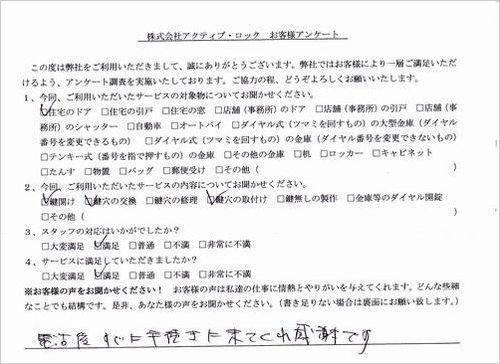 株式会社アクティブ・ロック　お客様アンケート
この度は弊社をご利用いただきまして、誠にありがとうございます。弊社ではお客様により一層ご満足いただ
けるよう、アンケート調査を実施いたしております。ご協力の程、どうぞよろしくお願いいたします。
1、今回、ご利用いただいたサービスの対象物についてお聞かせください。
☑住宅のドア　□住宅の引戸　□住宅の窓　□店舗（事務所）のドア　□店舗（事務所）の引戸　□店舗（事
務所）のシャッター　□自動車　□オートバイ　□ダイヤル式（ツマミを回すもの）の大型金庫（ダイヤル
番号を変更できるもの）　□ダイヤル式（ツマミを回すもの）の金庫（ダイヤル番号を変更できないもの）
□テンキー式（番号を指で押すもの）の金庫　□その他の金庫　□机　□ロッカー　□キャビネット
□たんす　□物置　□バッグ　□郵便受け　□その他（　　　　）
2、今回、ご利用いただいたサービスの内容についてお聞かせください。
☑鍵開け　☑鍵穴の交換　□鍵穴の修理　☑鍵穴の取付け　□鍵無しの製作　□金庫等のダイヤル開錠
□その他（　　　　）
3、スタッフの対応はいかがでしたか？
□大変満足　☑満足　□普通　□不満　□非常に不満
4、サービスに満足していただきましたか？
□大変満足　☑満足　□普通　□不満　□非常に不満
※お客様の声をお聞かせください！　お客様の声は私達の仕事に情熱とやりがいを与えてくれます。どんな些細
なことでも結構です。是非、あなた様の声をお聞かせください。（書き足りない場合は裏面にお願い致します。）
電話後 すぐに手際きに来てくれ感謝です